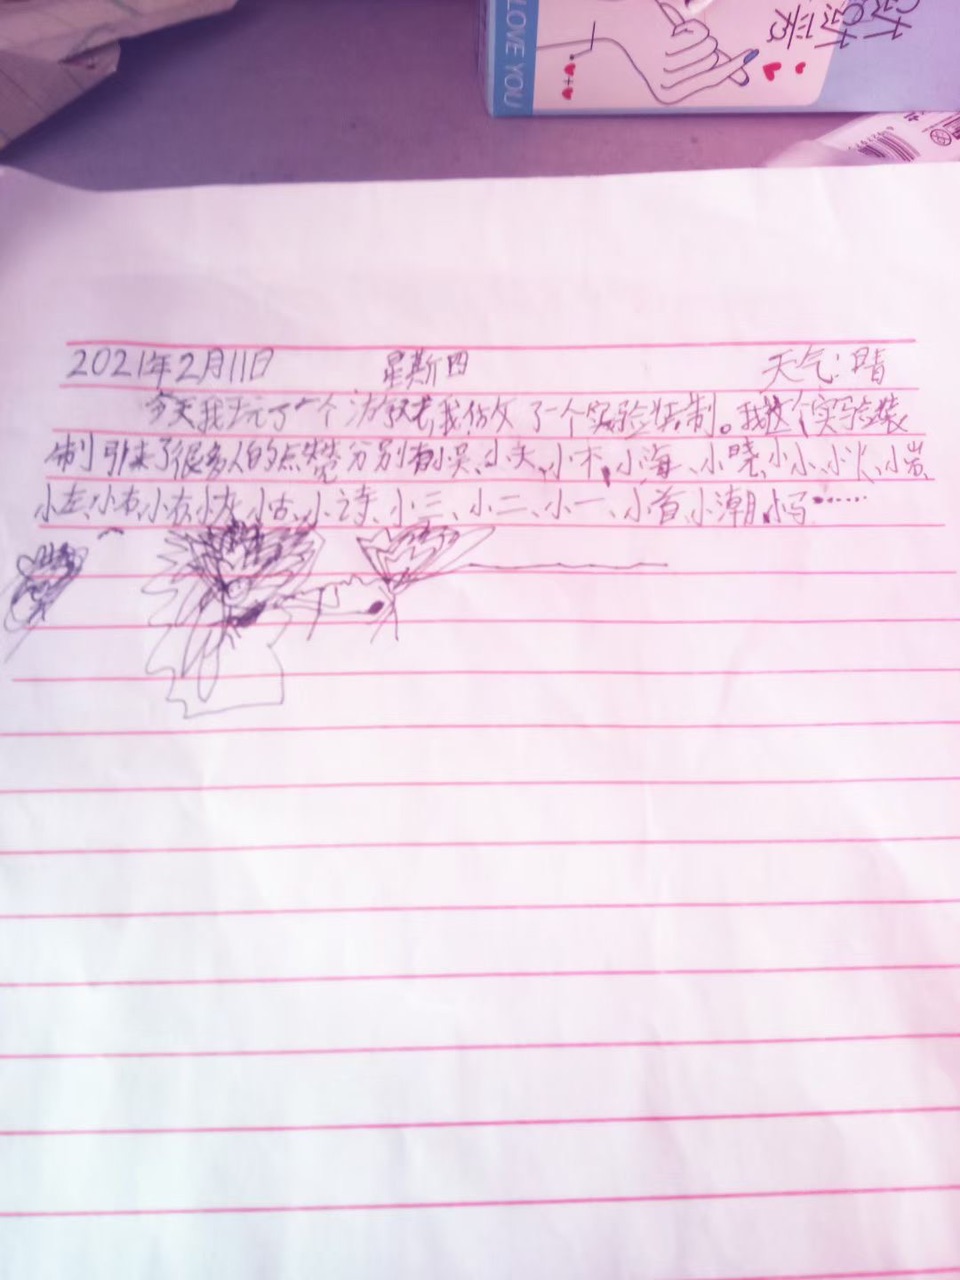 LOVE YOU
2021年2月11日 星斯四 天气:晴
今天我玩了一个游戏,我仿仪了一个实验装制。我这个实验装
制引来了很多人的点赞分别有小吴、小天、小木、小海、小晓、小小、小火、小岩、
小左、小右、小友、小灰、小古、小诗、小三、小二、小一、小首、小潮、小马……